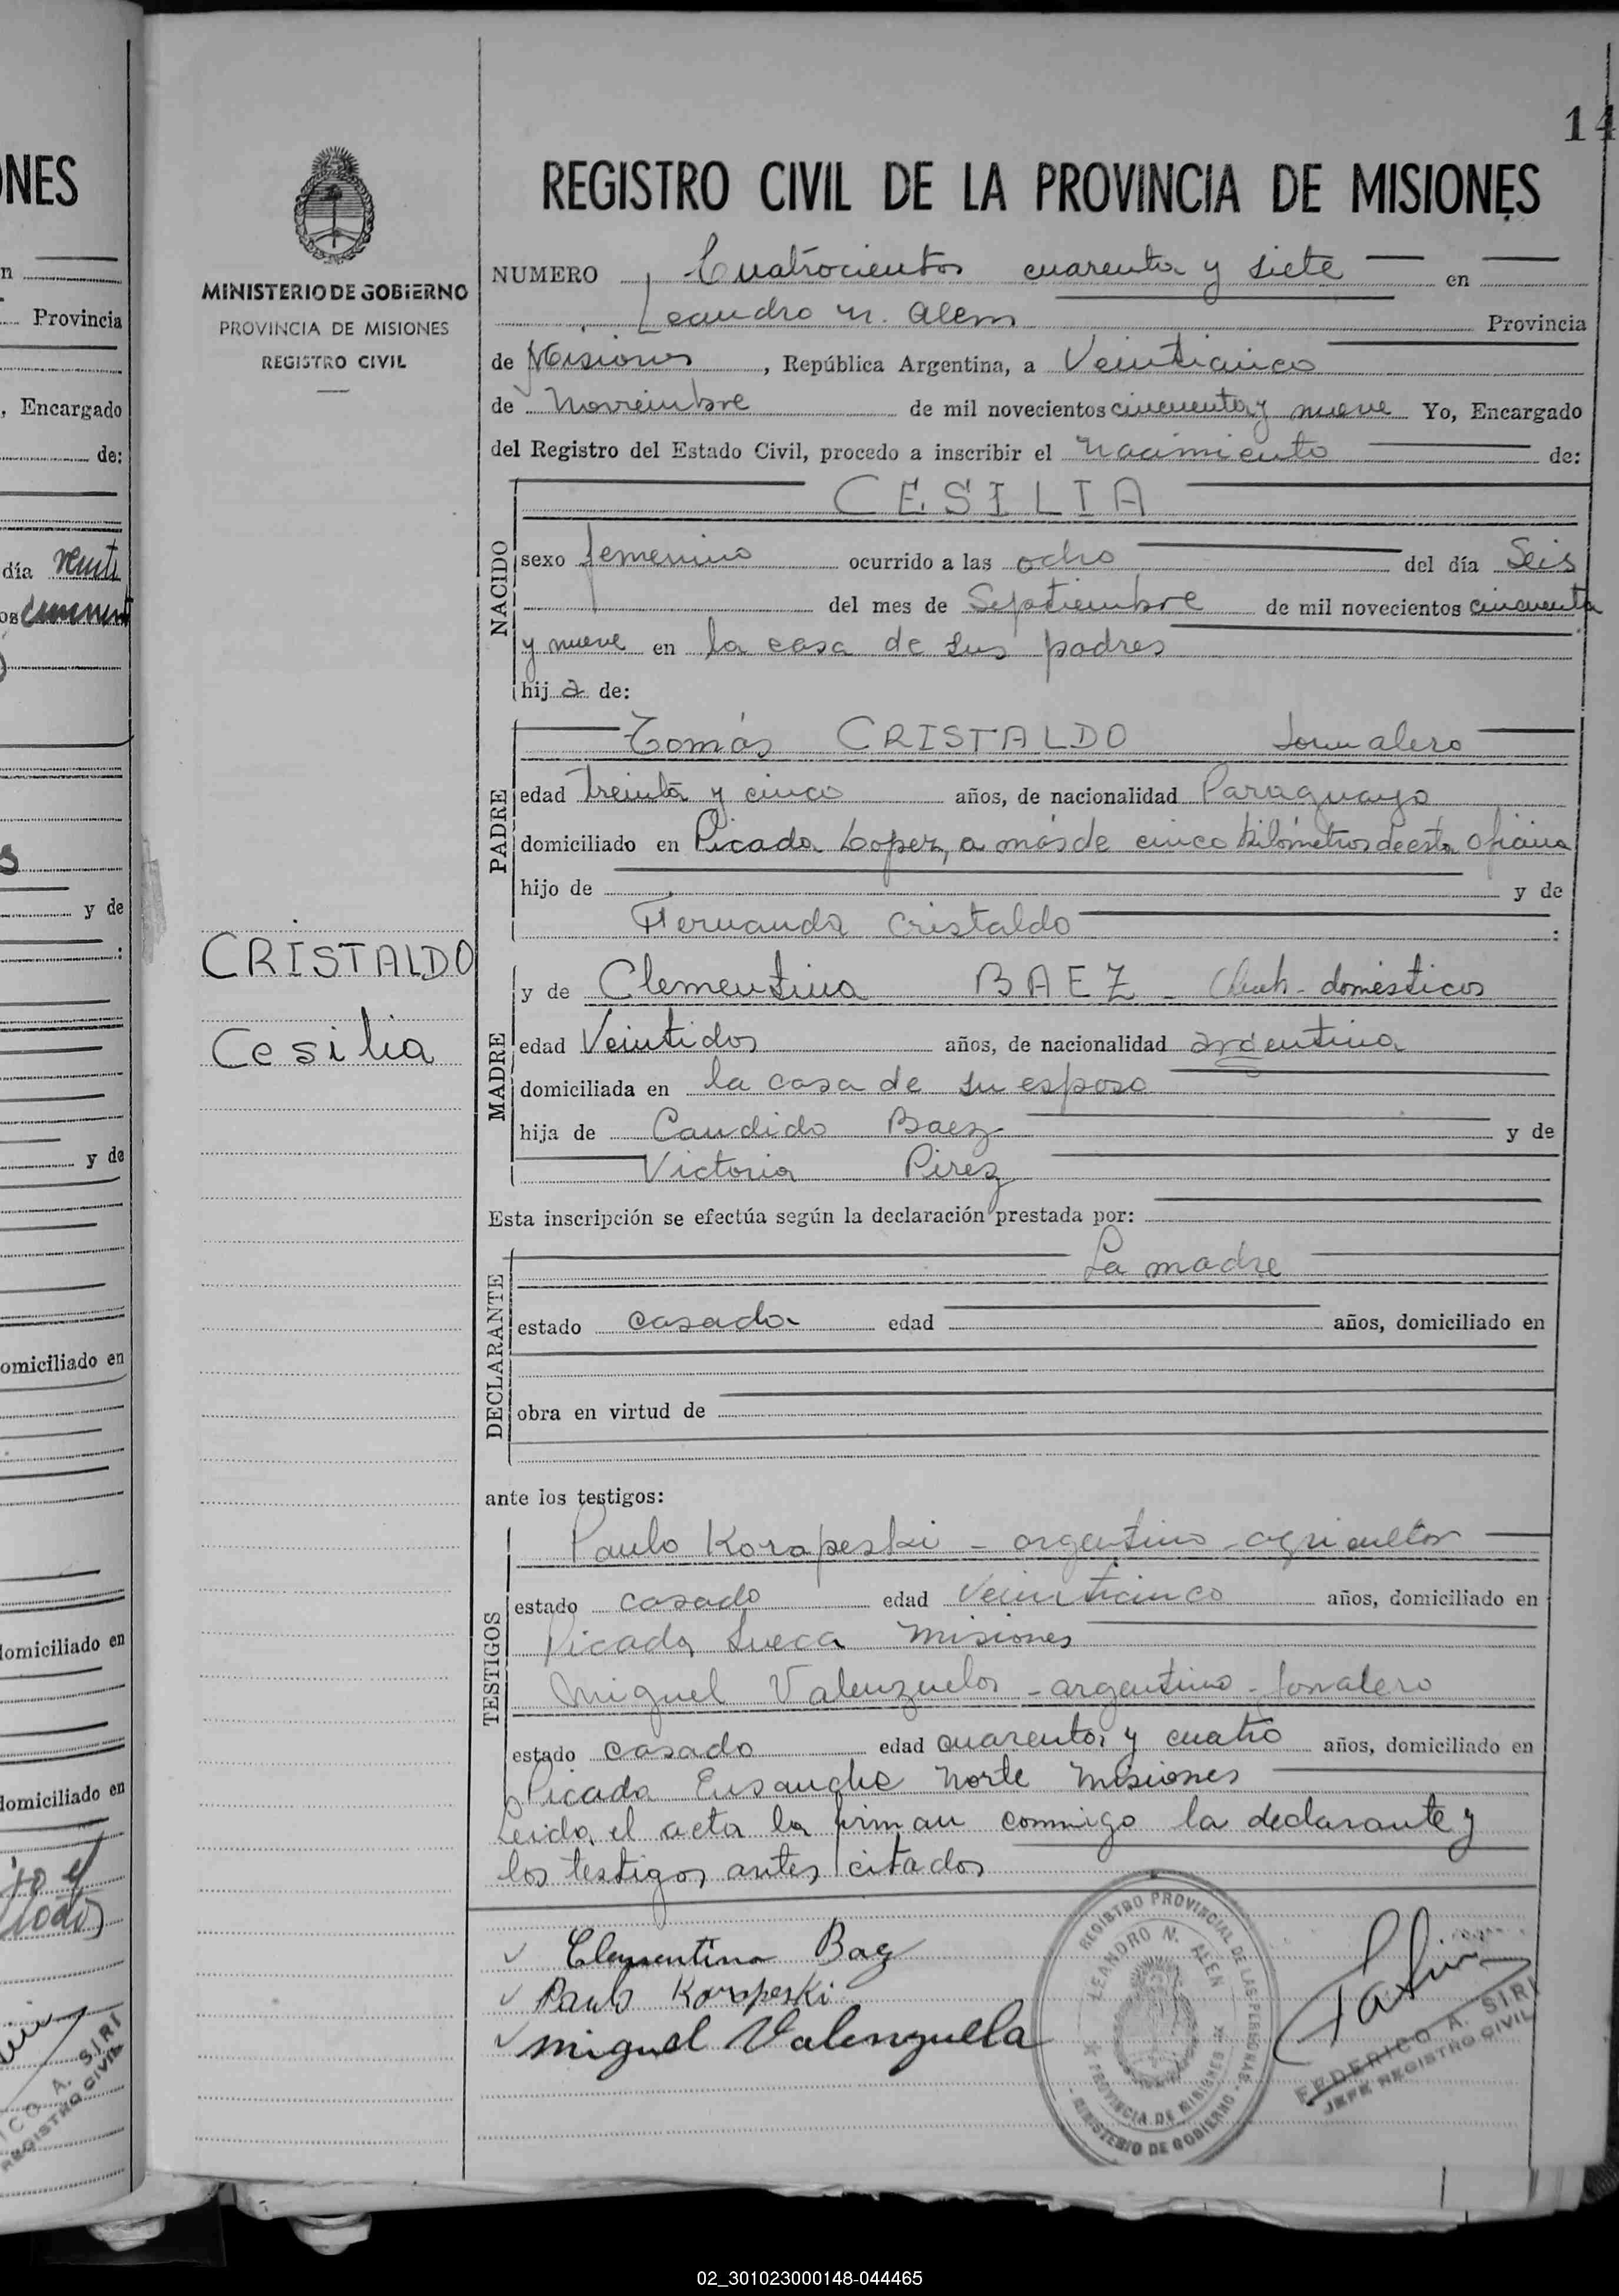 14
REGISTRO CIVIL DE LA PROVINCIA DE MISIONES
MINISTERIO DE GOBIERNO
PROVINCIA DE MISIONES
REGISTRO CIVIL
CRISTALDO
Cesilia
NUMERO Cuatrocientos cuarenta y siete en
Leandro N. Alem Provincia
de Misiones, República Argentina, a Veinticinco
de Noviembre de mil novecientos cincuenta y nueve Yo, Encargado
del Registro del Estado Civil, procedo a inscribir el nacimiento de:
NACIDO
CESILIA
sexo femenino ocurrido a las ocho del día Seis
del mes de Septiembre de mil novecientos cincuenta
y nueve en la casa de sus padres
hija de:
PADRE
Tomás CRISTALDO Jornalero
edad treinta y cinco años, de nacionalidad Paraguayo
domiciliado en Picada Lopez, a más de cinco kilómetros de esta Oficina
hijo de y de
Fernanda Cristaldo :
MADRE
y de Clementina BAEZ domésticos
edad Veintidos años, de nacionalidad argentina
domiciliada en la casa de su esposo
hija de Candido Baez y de
Victoria Pirez
Esta inscripción se efectúa según la declaración prestada por:
DECLARANTE
La madre
estado casada edad años, domiciliado en
obra en virtud de
ante los testigos:
TESTIGOS
Paulo Korapeski - argentino - agricultor
estado casado edad Veinticinco años, domiciliado en
Picada Sueca Misiones
Miguel Valenzuela - argentino - jornalero
estado casado edad cuarenta y cuatro años, domiciliado en
Picada Ensanche Norte Misiones
Leida el acta la firman conmigo la declarante y
los testigos antes citados
Clementina Baez
Paulo Korapeski
Miguel Valenzuela
REGISTRO PROVINCIAL DE LAS PERSONAS
LEANDRO N. ALEN
PROVINCIA DE MISIONES
MINISTERIO DE GOBIERNO
FEDERICO A. SIRI
JEFE REGISTRO CIVIL
02_301023000148-044465